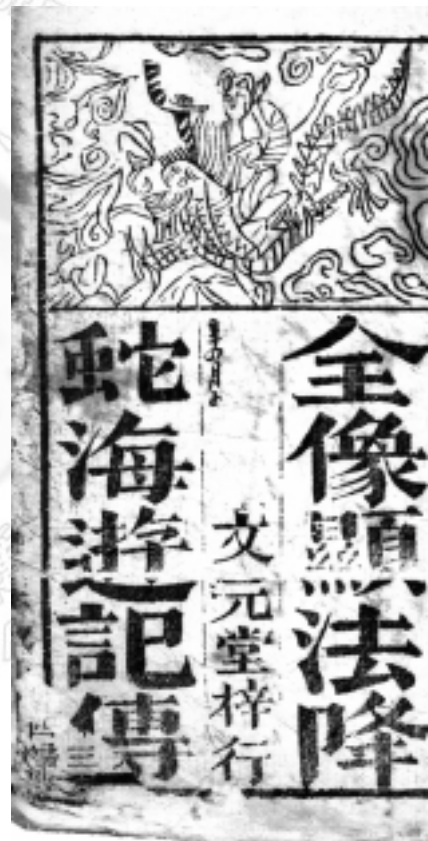 全像顯法降
文元堂梓行
蛇海遊記傳